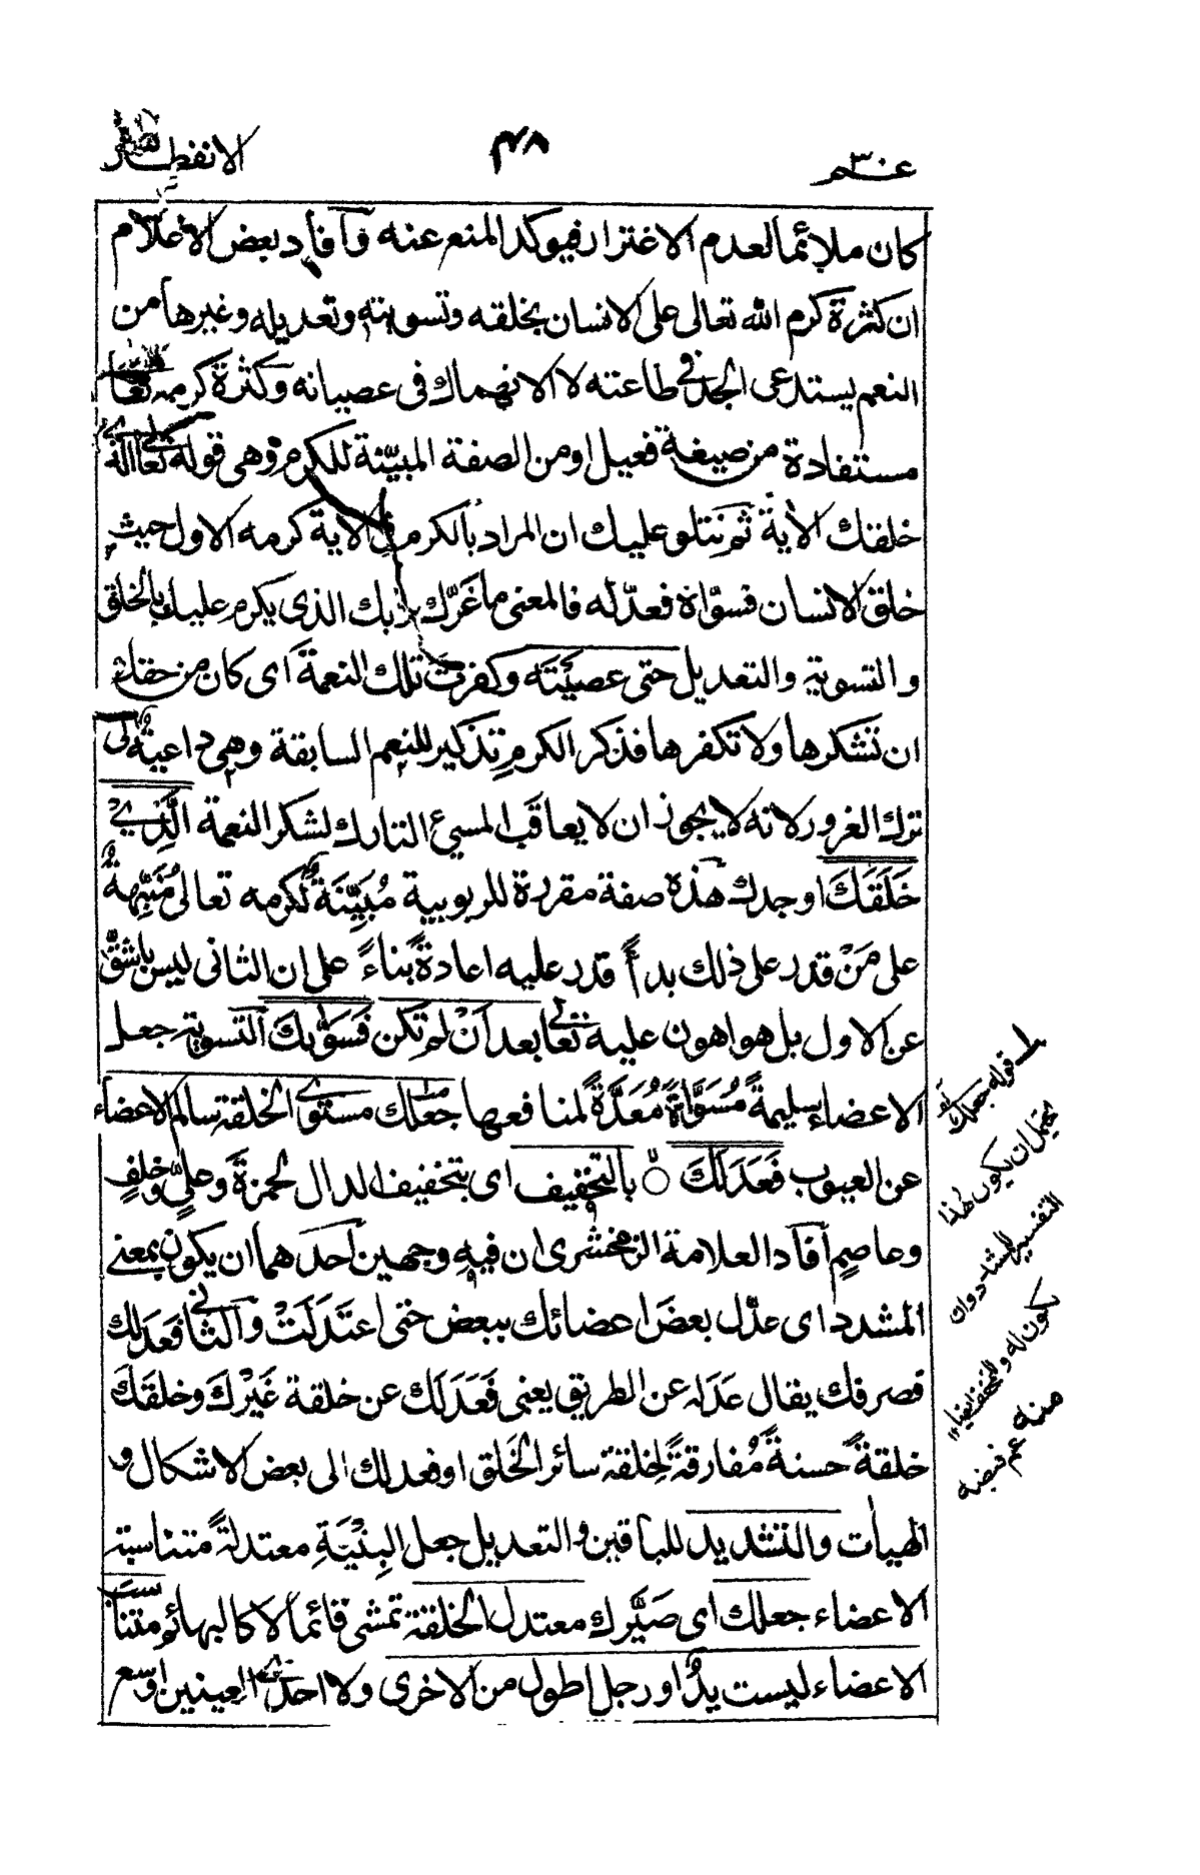 عم ٣٠
٤٨
الانفطار
كان ملائما لعدم الاغترار فيوكد المنع عنه وآفاد بعض الاعلام
ان كثرة كرم الله تعالى على الانسان بخلقه وتسويته وتعديله وغيرها من
النعم يستدعى الجد في طاعته لا الانهماك فى عصيانه وكثرة كرمه تعالى
مستفادة من صيغة فعيل او من الصفة المبيّنة للكرم وهى قوله تعالى الذي
خلقك الأية ثم نتلو عليك ان المراد بالكرم في الاية كرمه الاول حيث
خلق الانسان فسوّاه فعدّله فالمعنى ما غرّك بربك الذى يكرم عليك بالخلق
والتسوية والتعديل حتى عصيته وكفرت تلك النعمة اى كان من حقك
ان تشكرها ولا تكفرها فذكر الكرم تذكير للنعم السابقة وهي داعية الى
ترك الغرور لانه لا يجوز ان لا يعاقب المسيئ التارك لشكر النعمة الَّذِي
خَلَقَكَ اوجدك هذه صفة مقررة للربوبية مُبَيِّنَة لكرمه تعالى مُنَبِّهةٌ
على مَنْ قدر على ذلك بدأً قدر عليه اعادةً بناءً على ان الثانى ليس باشقّ
عن الاول بل هو اهون عليه تعالى بعد أنْ لم تكن فَسَوّٰىكَ التسوية جعل
الاعضاء سليمةً مُسَوَّاةً مُعَدَّةً لمنافعها جعلك مستوى الخلقة سالم الاعضاء
عن العيوب فَعَدَلَكَ ○ بالتخفيف اى بتخفيف الدال لحمزةَ وعليٍّ وخلفٍ
وعاصمٍ آفاد العلامة الزمخشرى ان فيه وجهين آحدهما ان يكون بمعنى
المشدد اى عدّل بعضَ اعضائك ببعض حتى اعتَدَلَتْ والثانى فعَدَلك
فصرفك يقال عَدَله عن الطريق يعنى فَعَدَلَك عن خلقة غَيْرِكَ وخلقَكَ
خلقةً حسنةً مُفارقةً لخلقة سائر الخَلق او فعدلك الى بعض الاشكال و
الهيأت والتشديد للباقين والتعديل جعل البِنْيَةِ معتدلةً متناسبة
الاعضاء جعلك اى صَيَّرك معتدل الخلقة تمشى قائماً لا كالبهائم متناسب
الاعضاء ليست يدٌ او رجل اطول من الاخرى ولا احدى العينين اوسع
قوله جعلك
يحتمل ان يكون هذا
التفسير للمشدد وان
يكون له وللمخفف ايضا ١٢
منه عم فيضه